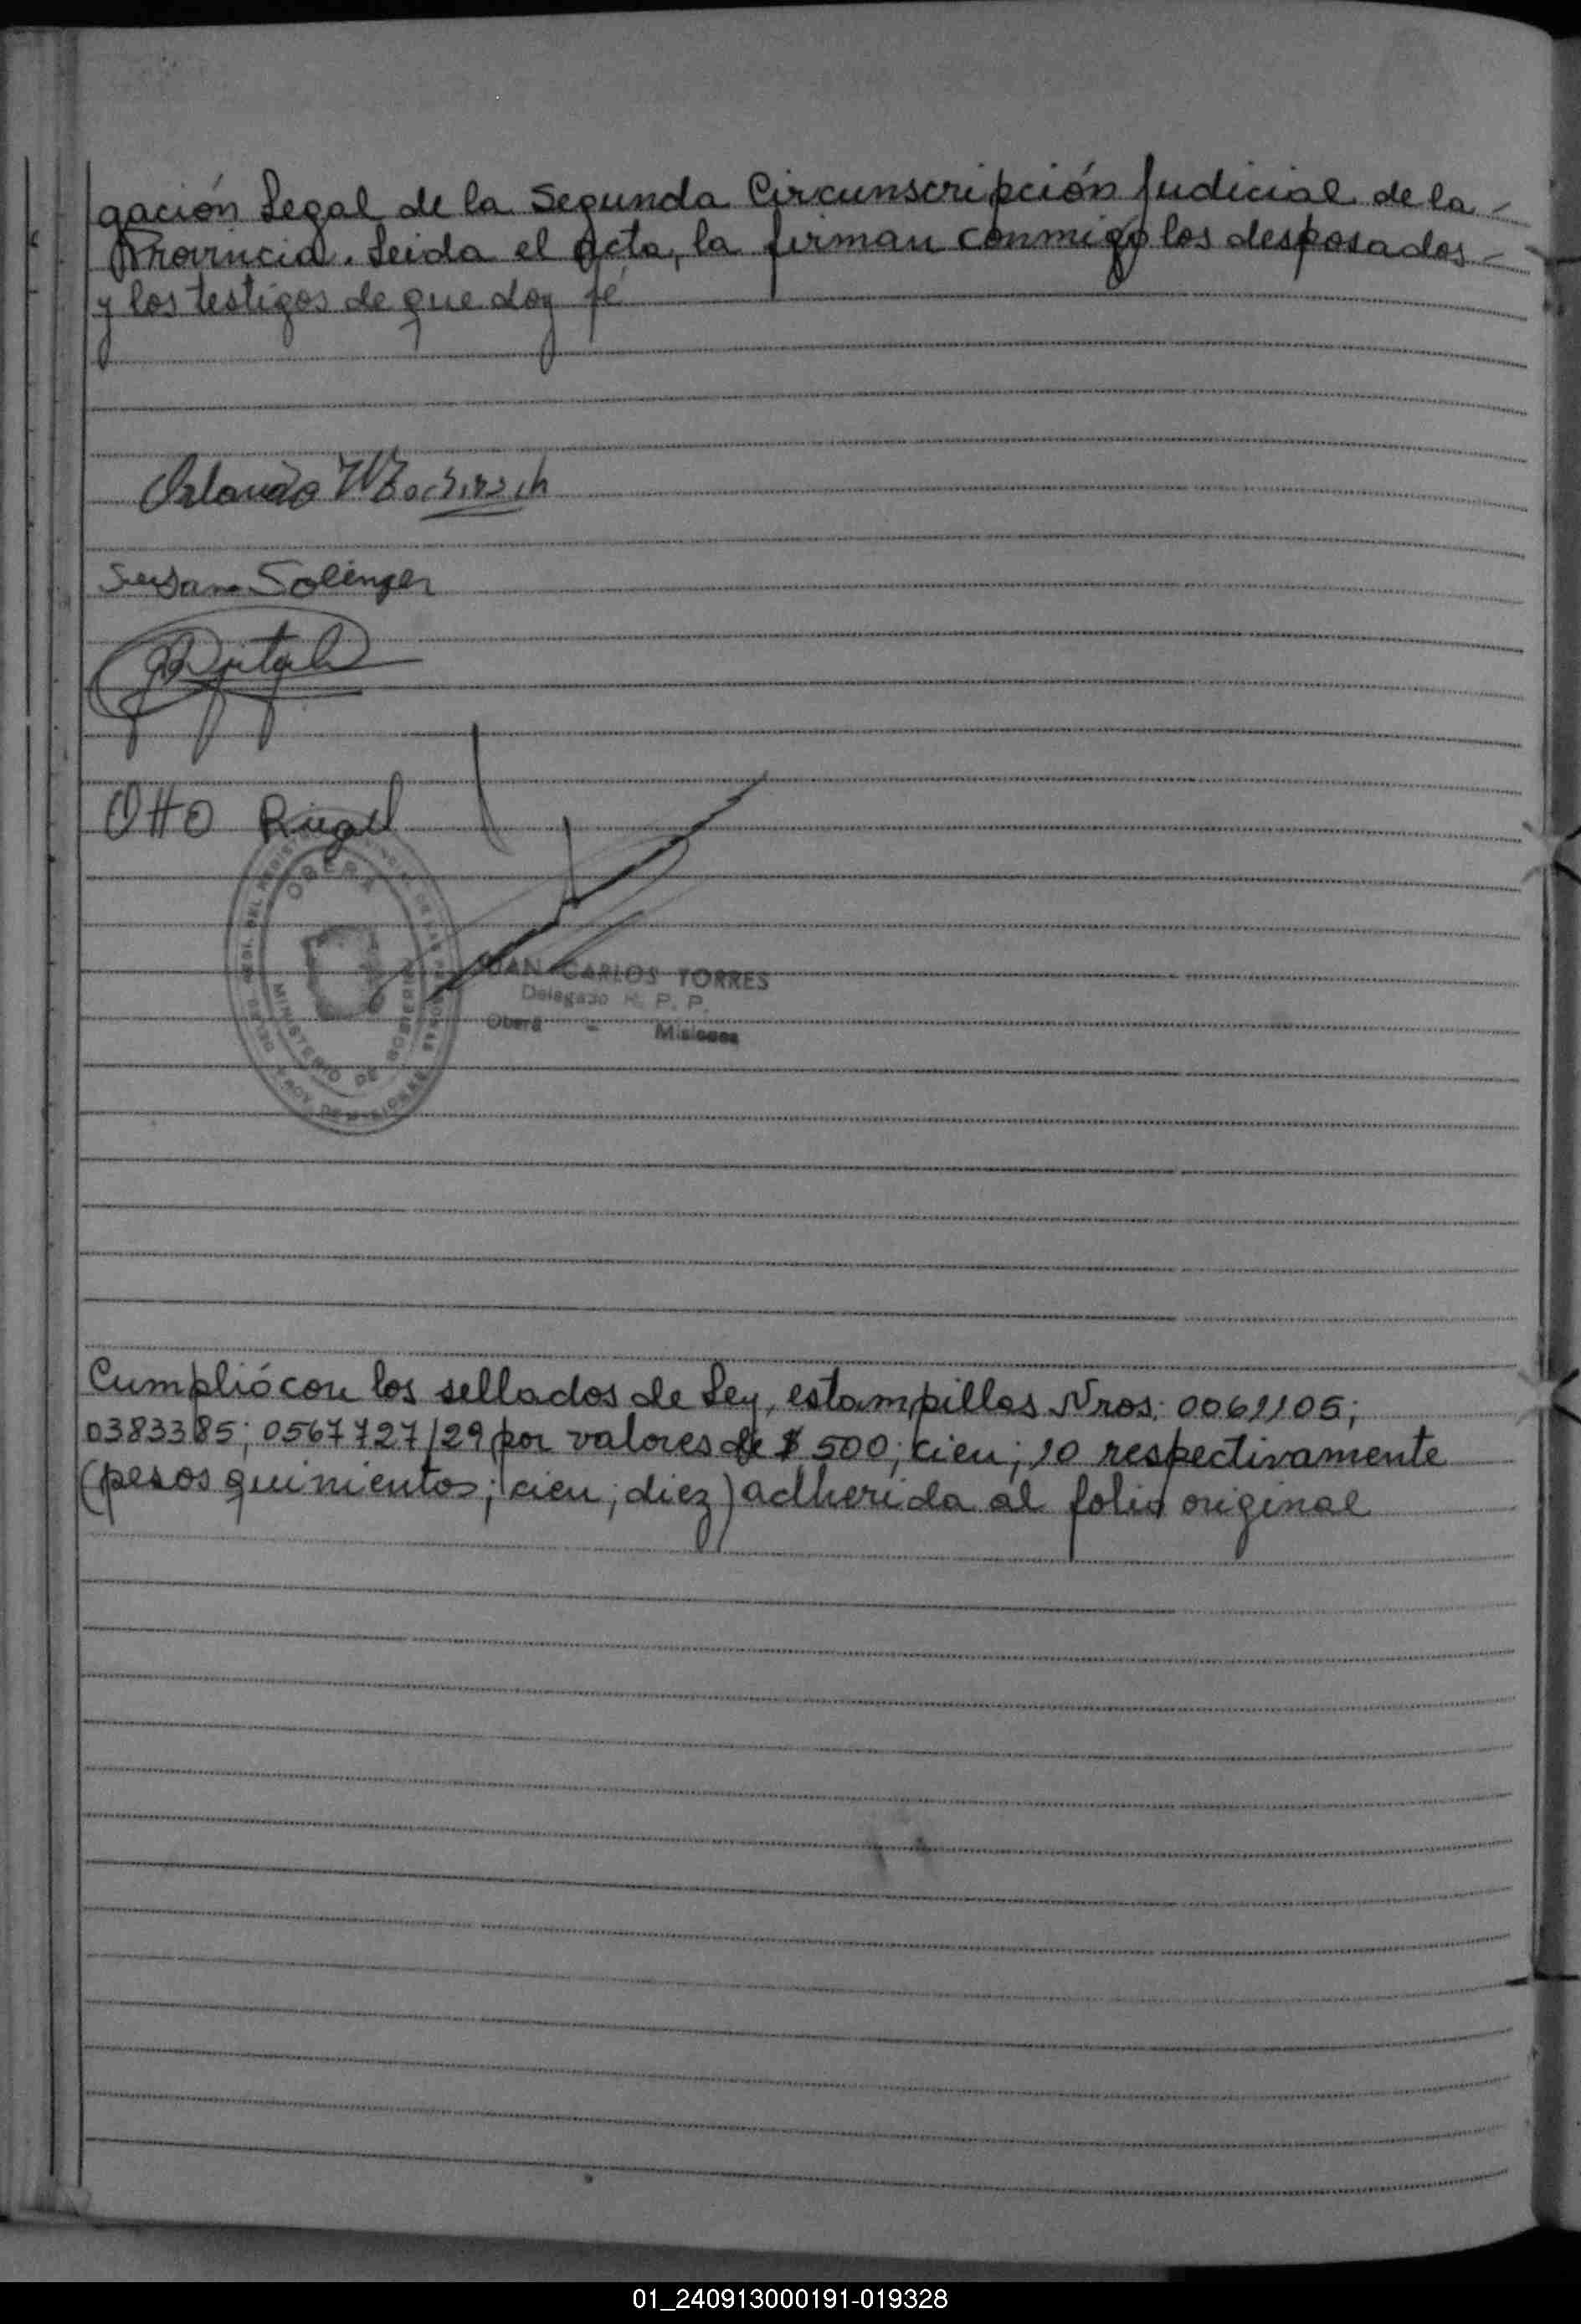 gación Legal de la Segunda Circunscripción Judicial de la -
Provincia. Leida el acta, la firman conmigo los desposados -
y los testigos de que doy fé
Orlando W
Susana Solinger
Otto
OBERA
MINISTERIO DE GOBIERNO
JUAN CARLOS TORRES
Delegado R. P. P.
Oberá - Misiones
Cumplió con los sellados de Ley, estampillas Nros: 0061105;
0383385; 0567727/29 por valores de $ 500; cien; 10 respectivamente
(pesos quinientos; cien; diez) adherida al folio original
01_240913000191-019328